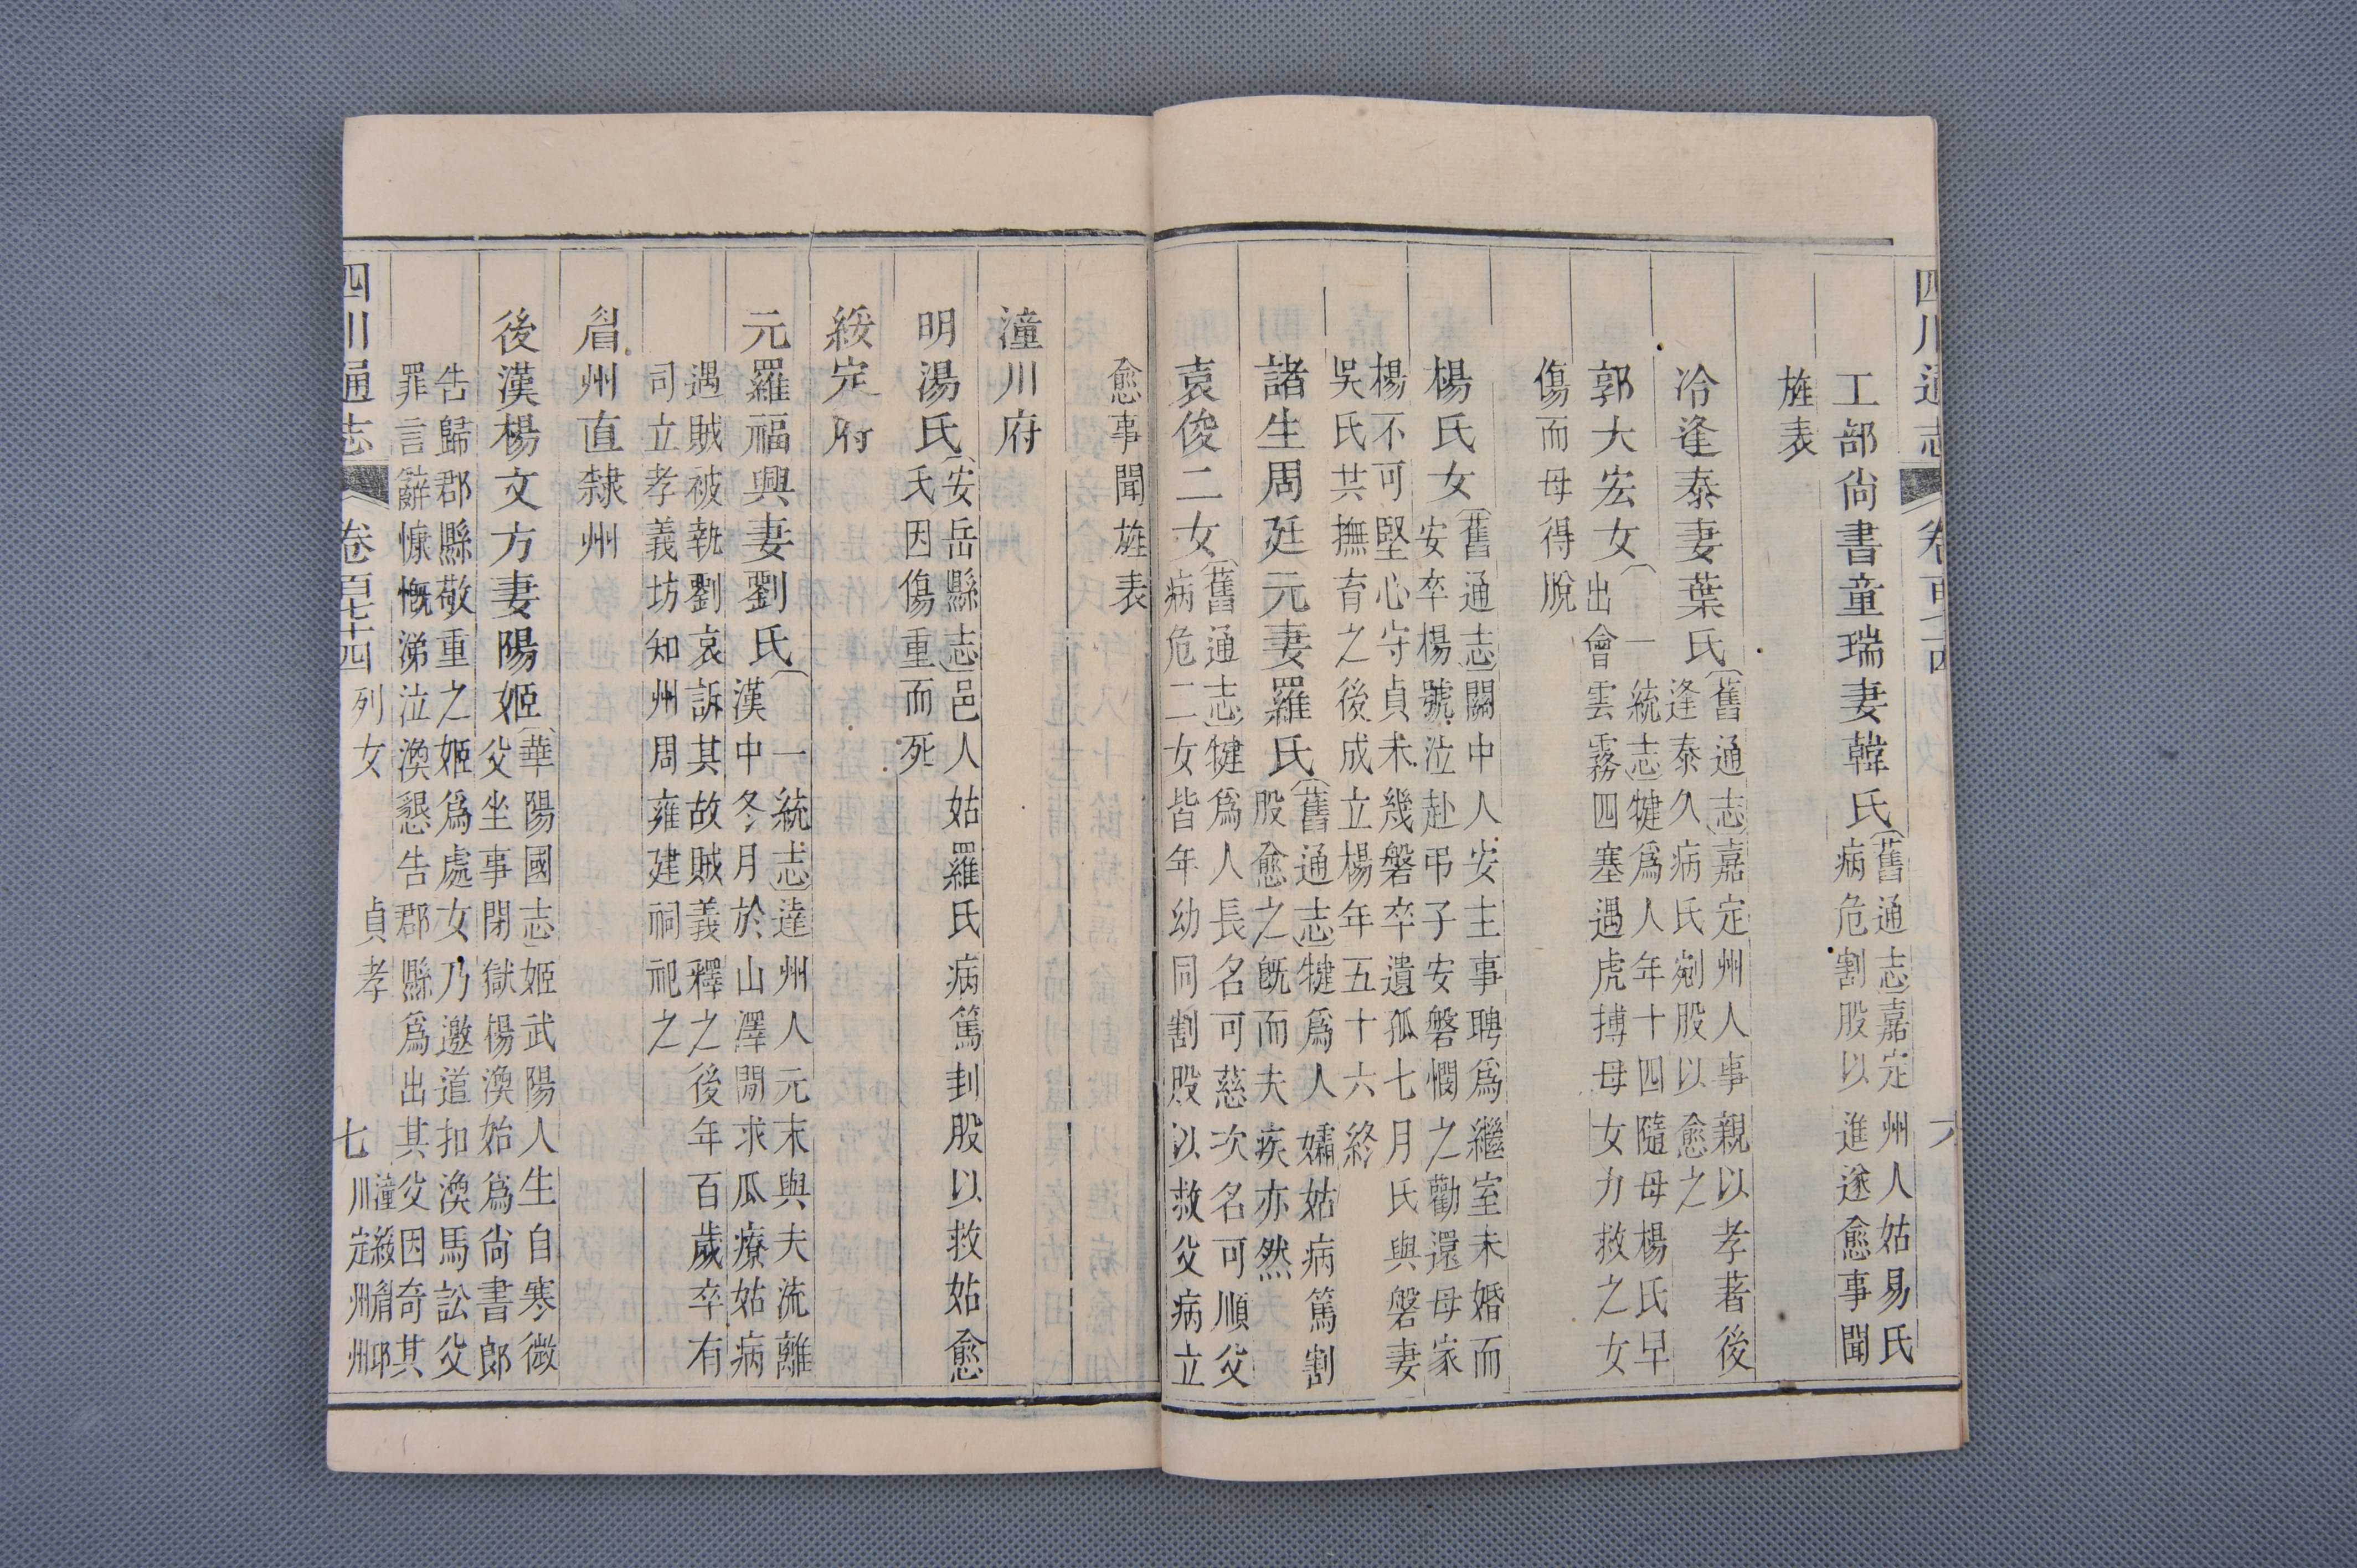 四川通志 卷百七十四 六
工部尙書童瑞妻韓氏〔舊通志〕嘉定州人姑易氏
病危割股以進遂愈事聞
旌表
冷逢泰妻葉氏〔舊通志〕嘉定州人事親以孝著後
逢泰久病氏剜股以愈之
郭大宏女〔一統志〕犍爲人年十四隨母楊氏早
出會雲霧四塞遇虎搏母女力救之女
傷而母得脫
楊氏女〔舊通志〕關中人安主事聘爲繼室未婚而
安卒楊號泣赴弔子安磐憫之勸還母家
楊不可堅心守貞未幾磐卒遺孤七月氏與磐妻
吳氏共撫育之後成立楊年五十六終
諸生周廷元妻羅氏〔舊通志〕犍爲人孀姑病篤割
股愈之旣而夫疾亦然
袁俊二女〔舊通志〕犍爲人長名可慈次名可順父
病危二女皆年幼同割股以救父病立
愈事聞旌表
潼川府
明湯氏〔安岳縣志〕邑人姑羅氏病篤刲股以救姑愈
氏因傷重而死
綏定府
元羅福興妻劉氏〔一統志〕達州人元末與夫流離
漢中冬月於山澤間求瓜療姑病
遇賊被執劉哀訴其故賊義釋之後年百歲卒有
司立孝義坊知州周雍建祠祀之
眉州直隸州
後漢楊文方妻陽姬〔華陽國志〕姬武陽人生自寒微
父坐事閉獄楊渙始爲尙書郎
告歸郡縣敬重之姬爲處女乃邀道扣渙馬訟父
罪言辭慷慨涕泣渙懇告郡縣爲出其父因奇其
四川通志 卷百七十四 列女 貞孝 七 潼川 綏定 眉州 邛州